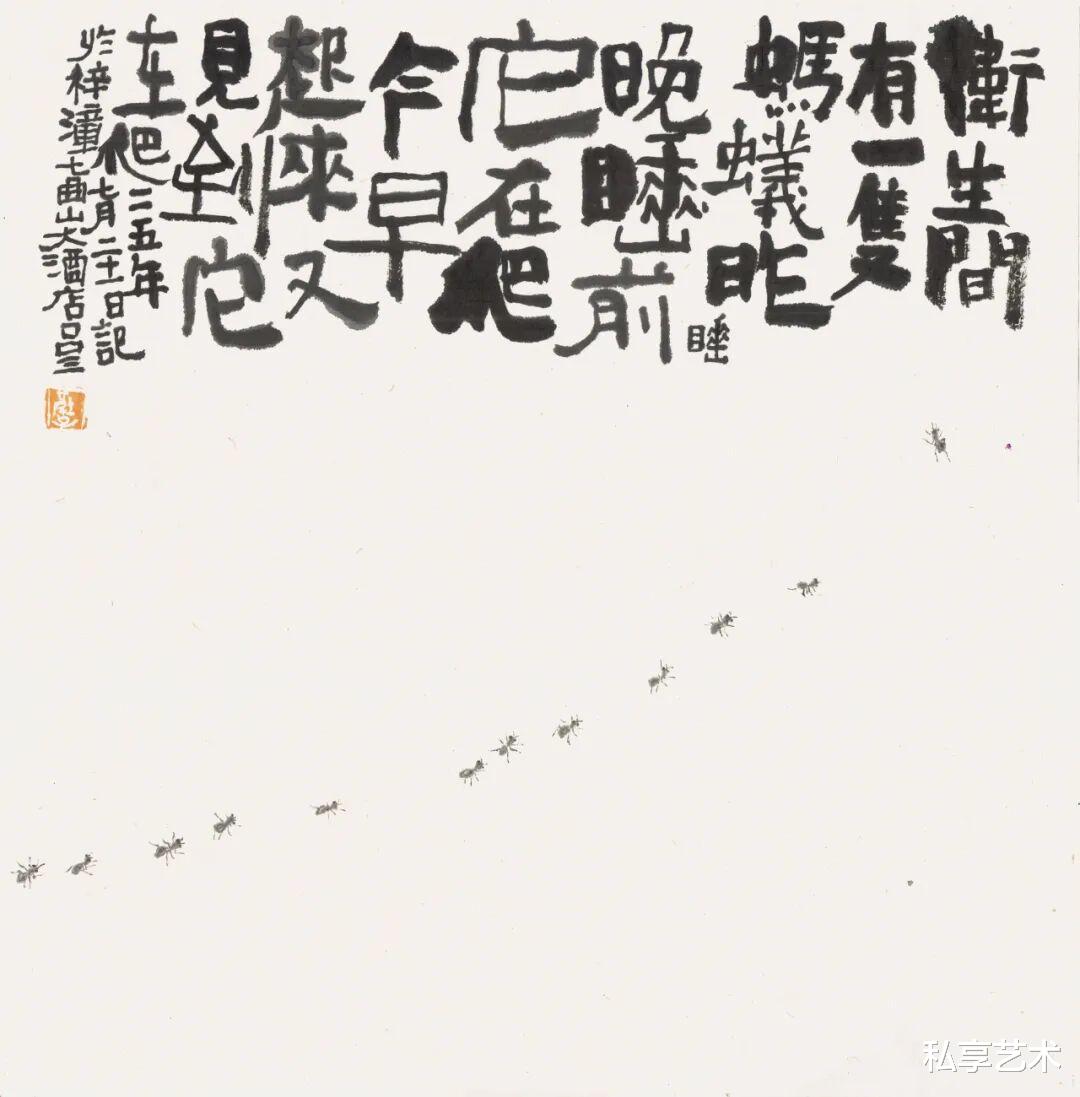 衛生間
有一隻
螞蟻昨
睡
晚睡前
它在爬
今早
起來又
見到它
在爬 二五年
七月二十一日記
於梓潼七曲山大酒店呂三
私享艺术